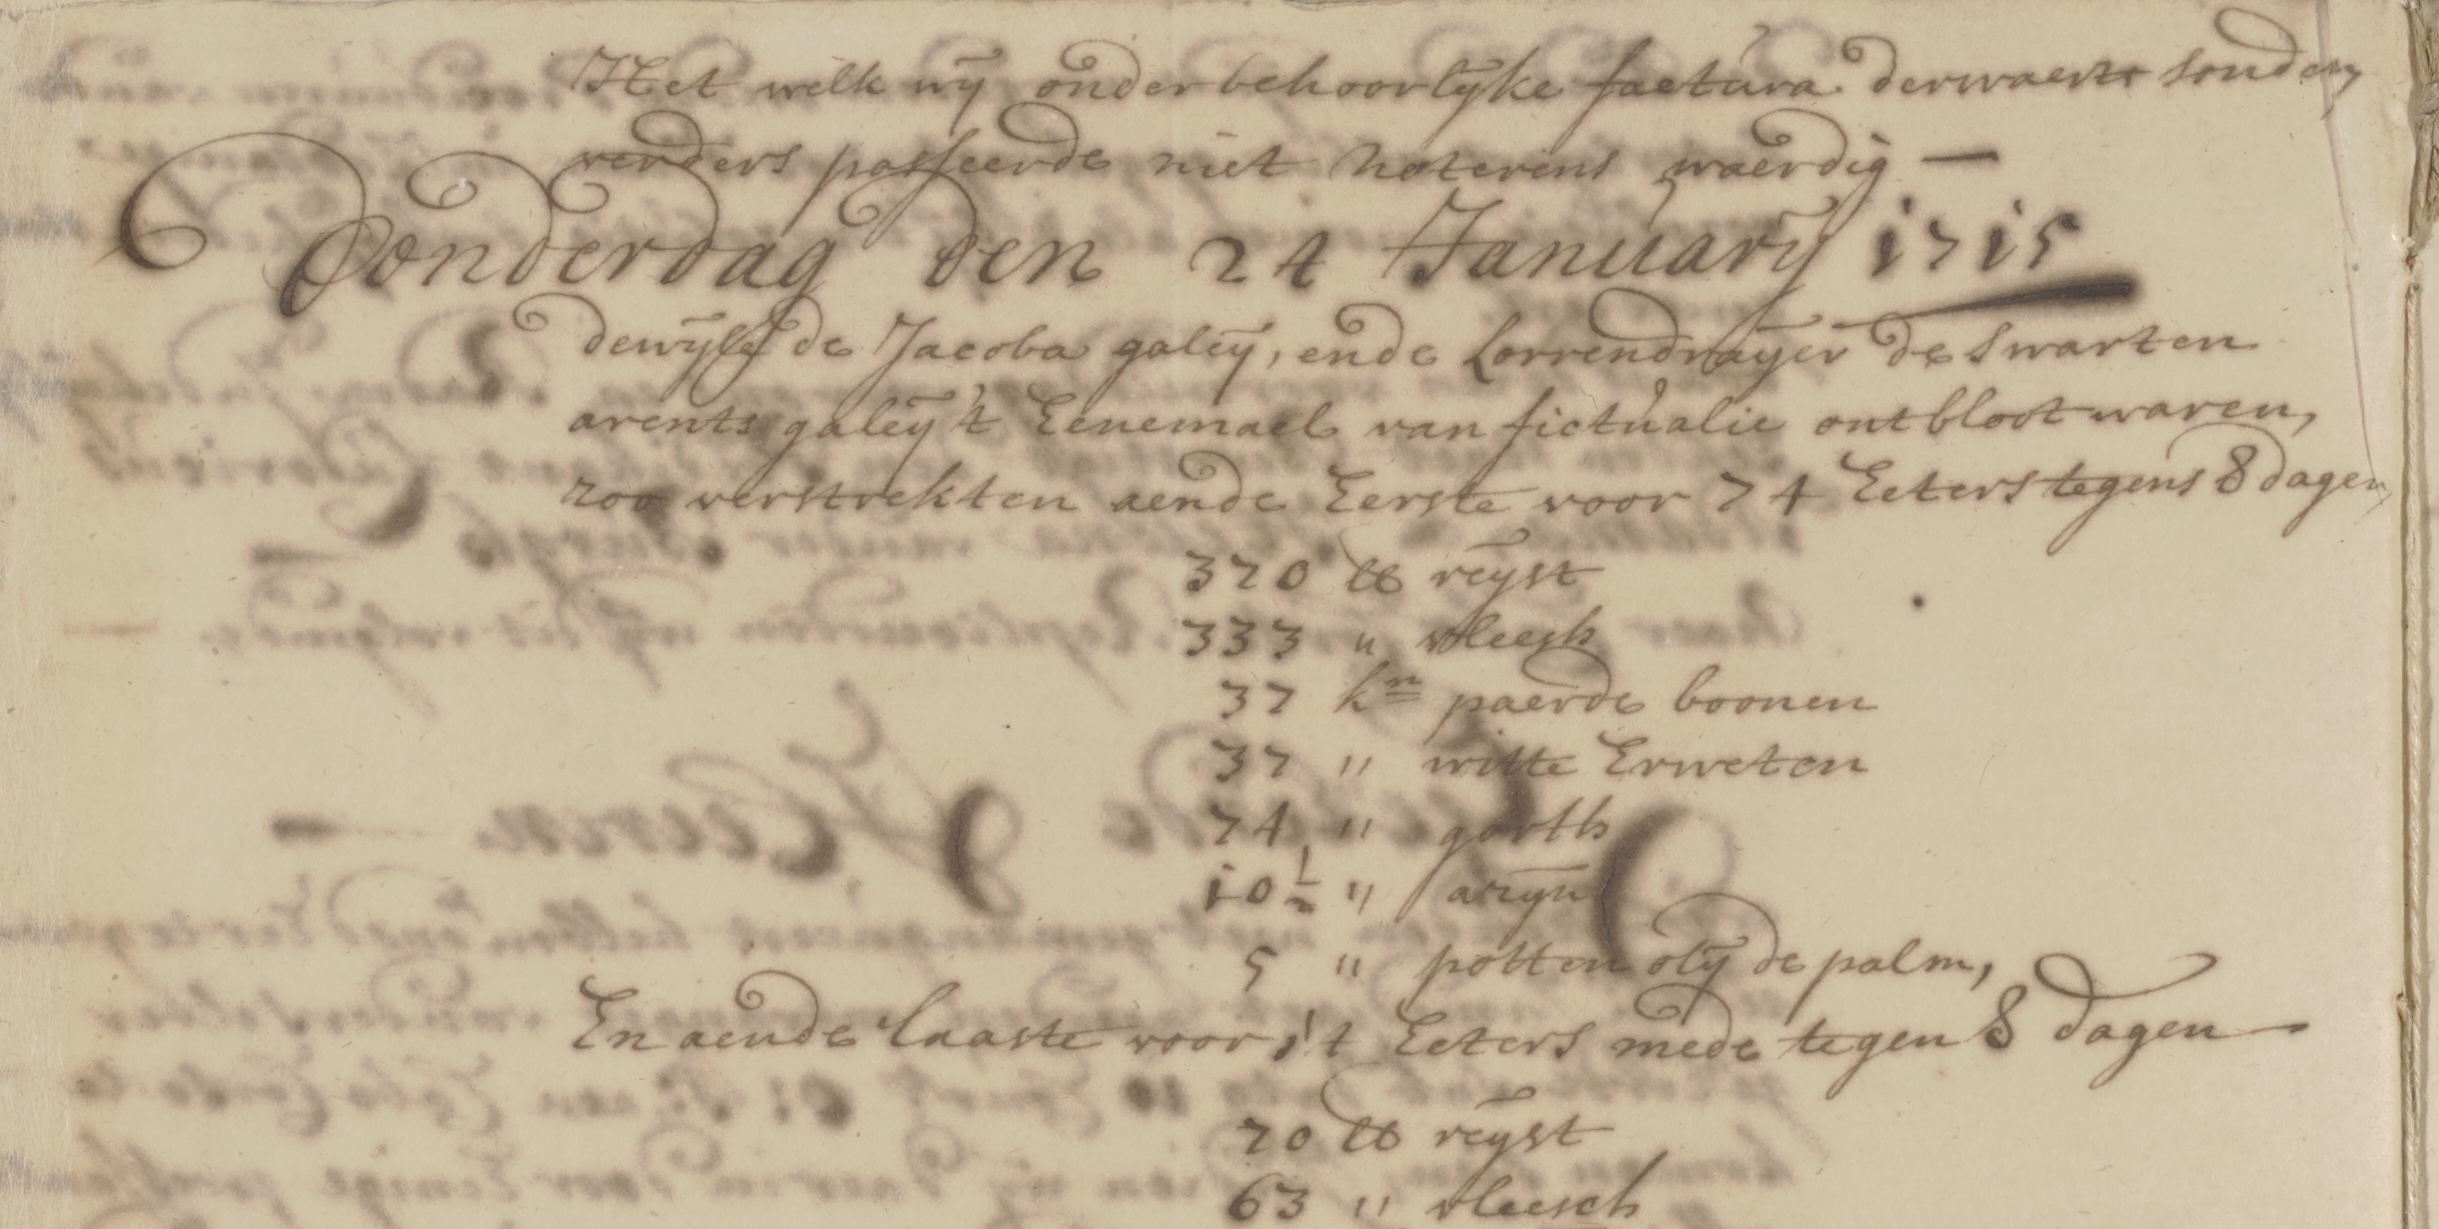 Het welk wij onder behoorlijke factura derwaerts sonden,
verders passeerde niet noterens waerdig —
Donderdag den 24 January 1715
dewijle de Jacoba galeij, ende Lorrendraijer de swarten
arents galeij 't Eenemael van fictualie ontbloot waren,
zoo verstrekten aende Eerste voor 74 Eeters tegens 8 dagen,
370 lb reijst
333 " vleesh
37 kn paerde boonen
37 " witte Erweten
74 " gorth
10 1/2 " azijn
5 " potten olij de palm,
En aende laaste voor 14 Eeters mede tegen 8 dagen —
70 lb reijst
63 " vleesch